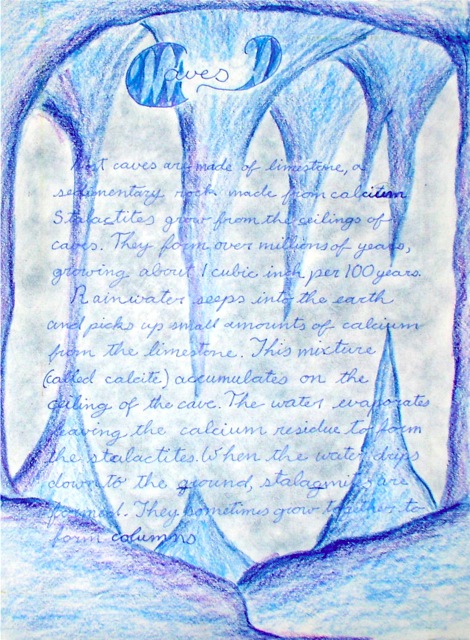 Caves
Most caves are made of limestone, a
sedimentary rock made from calcium
Stalactites grow from the ceilings of
caves. They form over millions of years,
growing about 1 cubic inch per 100 years.
Rainwater seeps into the earth
and picks up small amounts of calcium
from the limestone. This mixture
(called calcite) accumulates on the
ceiling of the cave. The water evaporates
leaving the calcium residue to form
the stalactites. When the water drips
down to the ground, stalagmites are
formed. They sometimes grow together to
form columns